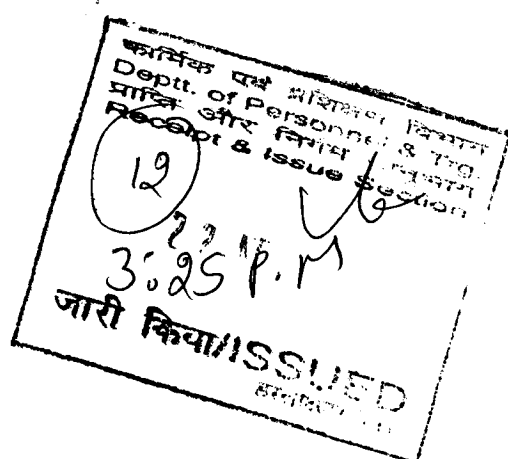 कार्मिक एवं प्रशिक्षण विभाग
Deptt. of Personnel & Trg.
प्राप्ति और निर्गम अनुभाग
Receipt & Issue Section
12
3:25 P.M
जारी किया/ISSUED